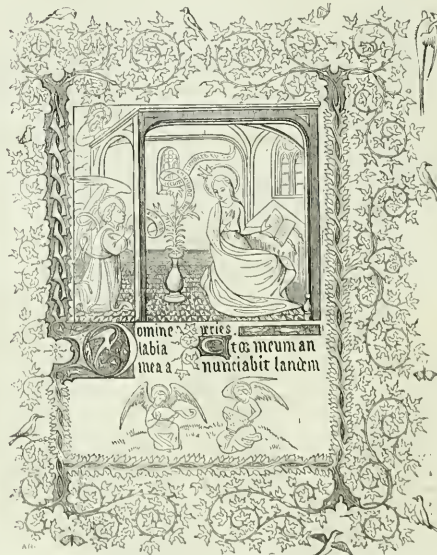 Domine
labia
mea a
peries.
Et os meum an
nunciabit laudem